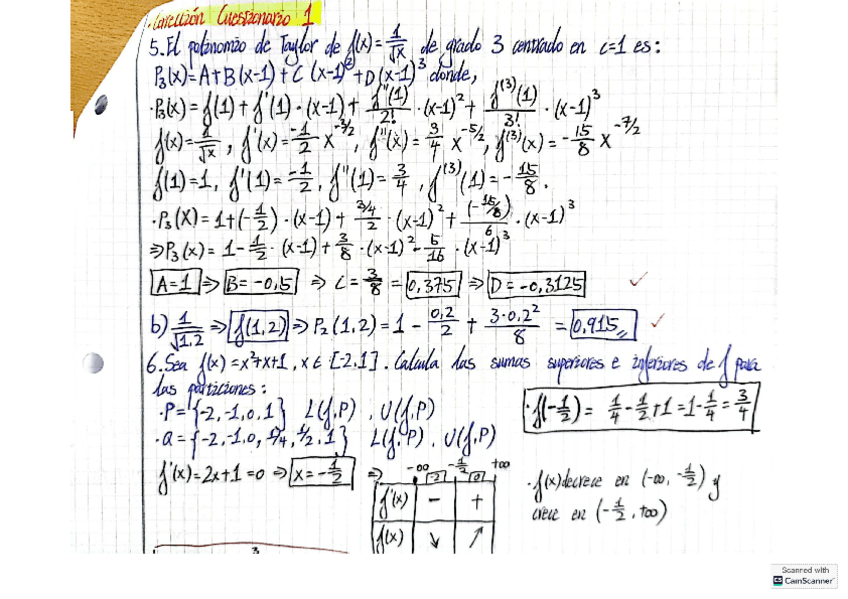 · Corrección Cuestionario 1
5. El polinomio de Taylor de f(x) = 1/√x de grado 3 centrado en c=1 es:
P₃(x) = A + B(x-1) + C (x-1)² + D(x-1)³ donde,
· P₃(x) = f(1) + f'(1) · (x-1) + f''(1)/2! · (x-1)² + f⁽³⁾(1)/3! · (x-1)³
f(x) = 1/√x , f'(x) = -1/2 x^(-3/2) , f''(x) = 3/4 x^(-5/2) , f⁽³⁾(x) = -15/8 x^(-7/2)
f(1) = 1, f'(1) = -1/2 , f''(1) = 3/4 , f⁽³⁾(1) = -15/8 .
· P₃(X) = 1 + (-1/2) · (x-1) + (3/4)/2 · (x-1)² + (-15/8)/6 · (x-1)³
⇒ P₃(x) = 1 - 1/2 · (x-1) + 3/8 · (x-1)² - 5/16 · (x-1)³
A = 1 ⇒ B = -0,5 ⇒ C = 3/8 = 0,375 ⇒ D = -0,3125 ✓
b) 1/√1,2 ⇒ f(1,2) ⇒ P₂(1,2) = 1 - 0,2/2 + 3·0,2²/8 = 0,915 ✓
6. Sea f(x) = x²+x+1 , x ∈ [-2,1] . Calcula las sumas superiores e inferiores de f para
las particiones:
· P = {-2, -1, 0, 1} L(f,P) , U(f,P)
· a = {-2, -1, 0, 1/4, 1/2, 1} L(f,P) , U(f,P)
· f(-1/2) = 1/4 - 1/2 + 1 = 1 - 1/4 = 3/4
f'(x) = 2x+1 = 0 ⇒ x = -1/2 ⇒
-∞ -2 -1/2 0 +∞
f'(x) - +
f(x) ↘ ↗
· f(x) decrece en (-∞, -1/2) y
crece en (-1/2, +∞)
Scanned with
CS CamScanner